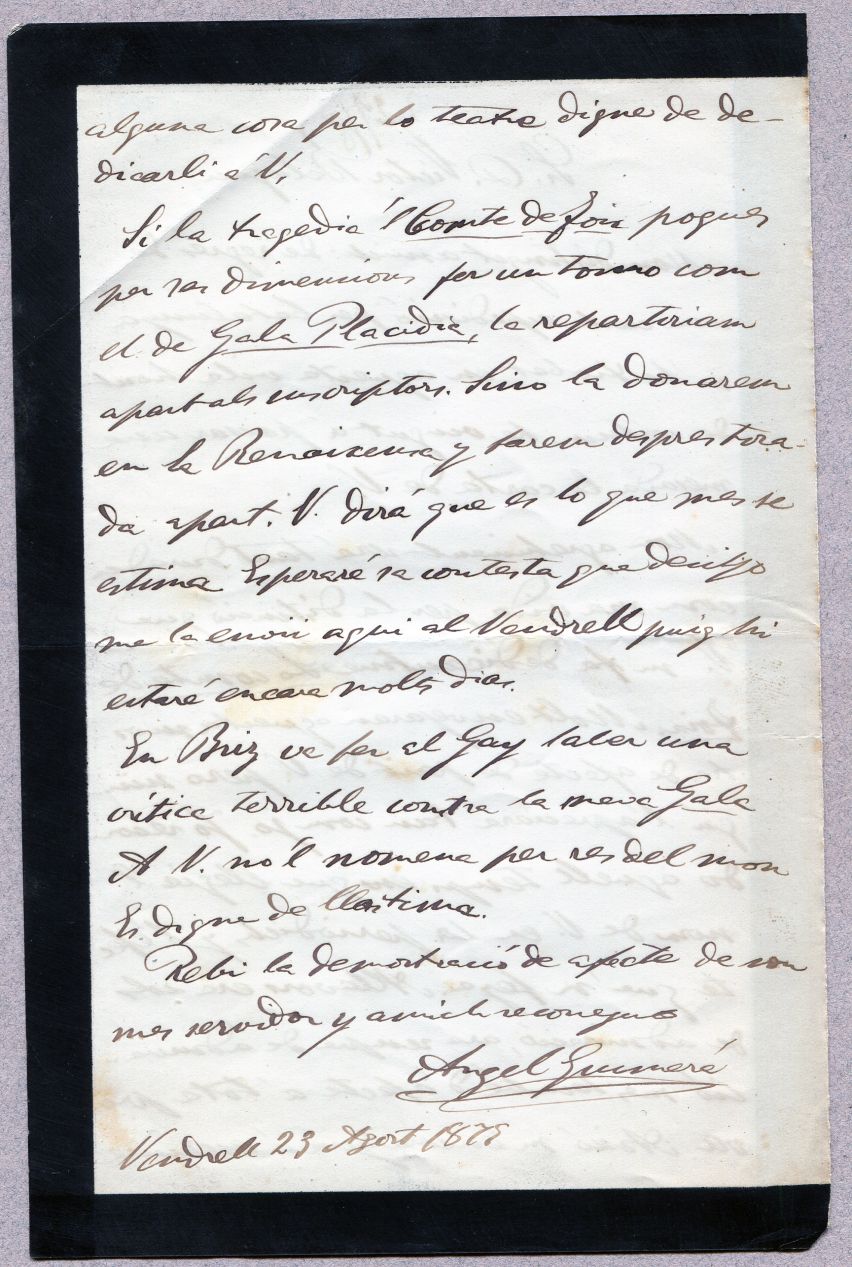 alguna cosa per lo teatre digne de de-
dicarli á V.
Si la tragedia 'l Comte de Foix pogués
per sas dimencions fer un tomo com
el de Gala Placidia, la repartiriam
apart als suscriptors. Sino la donarem
en la Renaixensa y farem despres tira-
da apart. V. dirá que es lo que mes se
estima Esperaré sa contesta que desitjo
me la envii aqui al Vendrell puig hi
estaré encara molts dias.
En Briz va fer al Gay saber una
crítica terrible contra la meva Gala
A V. no 'l nomena per res del mon
Es digne de llástima.
Rebi la demostració de afecte de son
mes servidor y amich reconegut
Angel Guimerá
Vendrell 23 Agost 1879